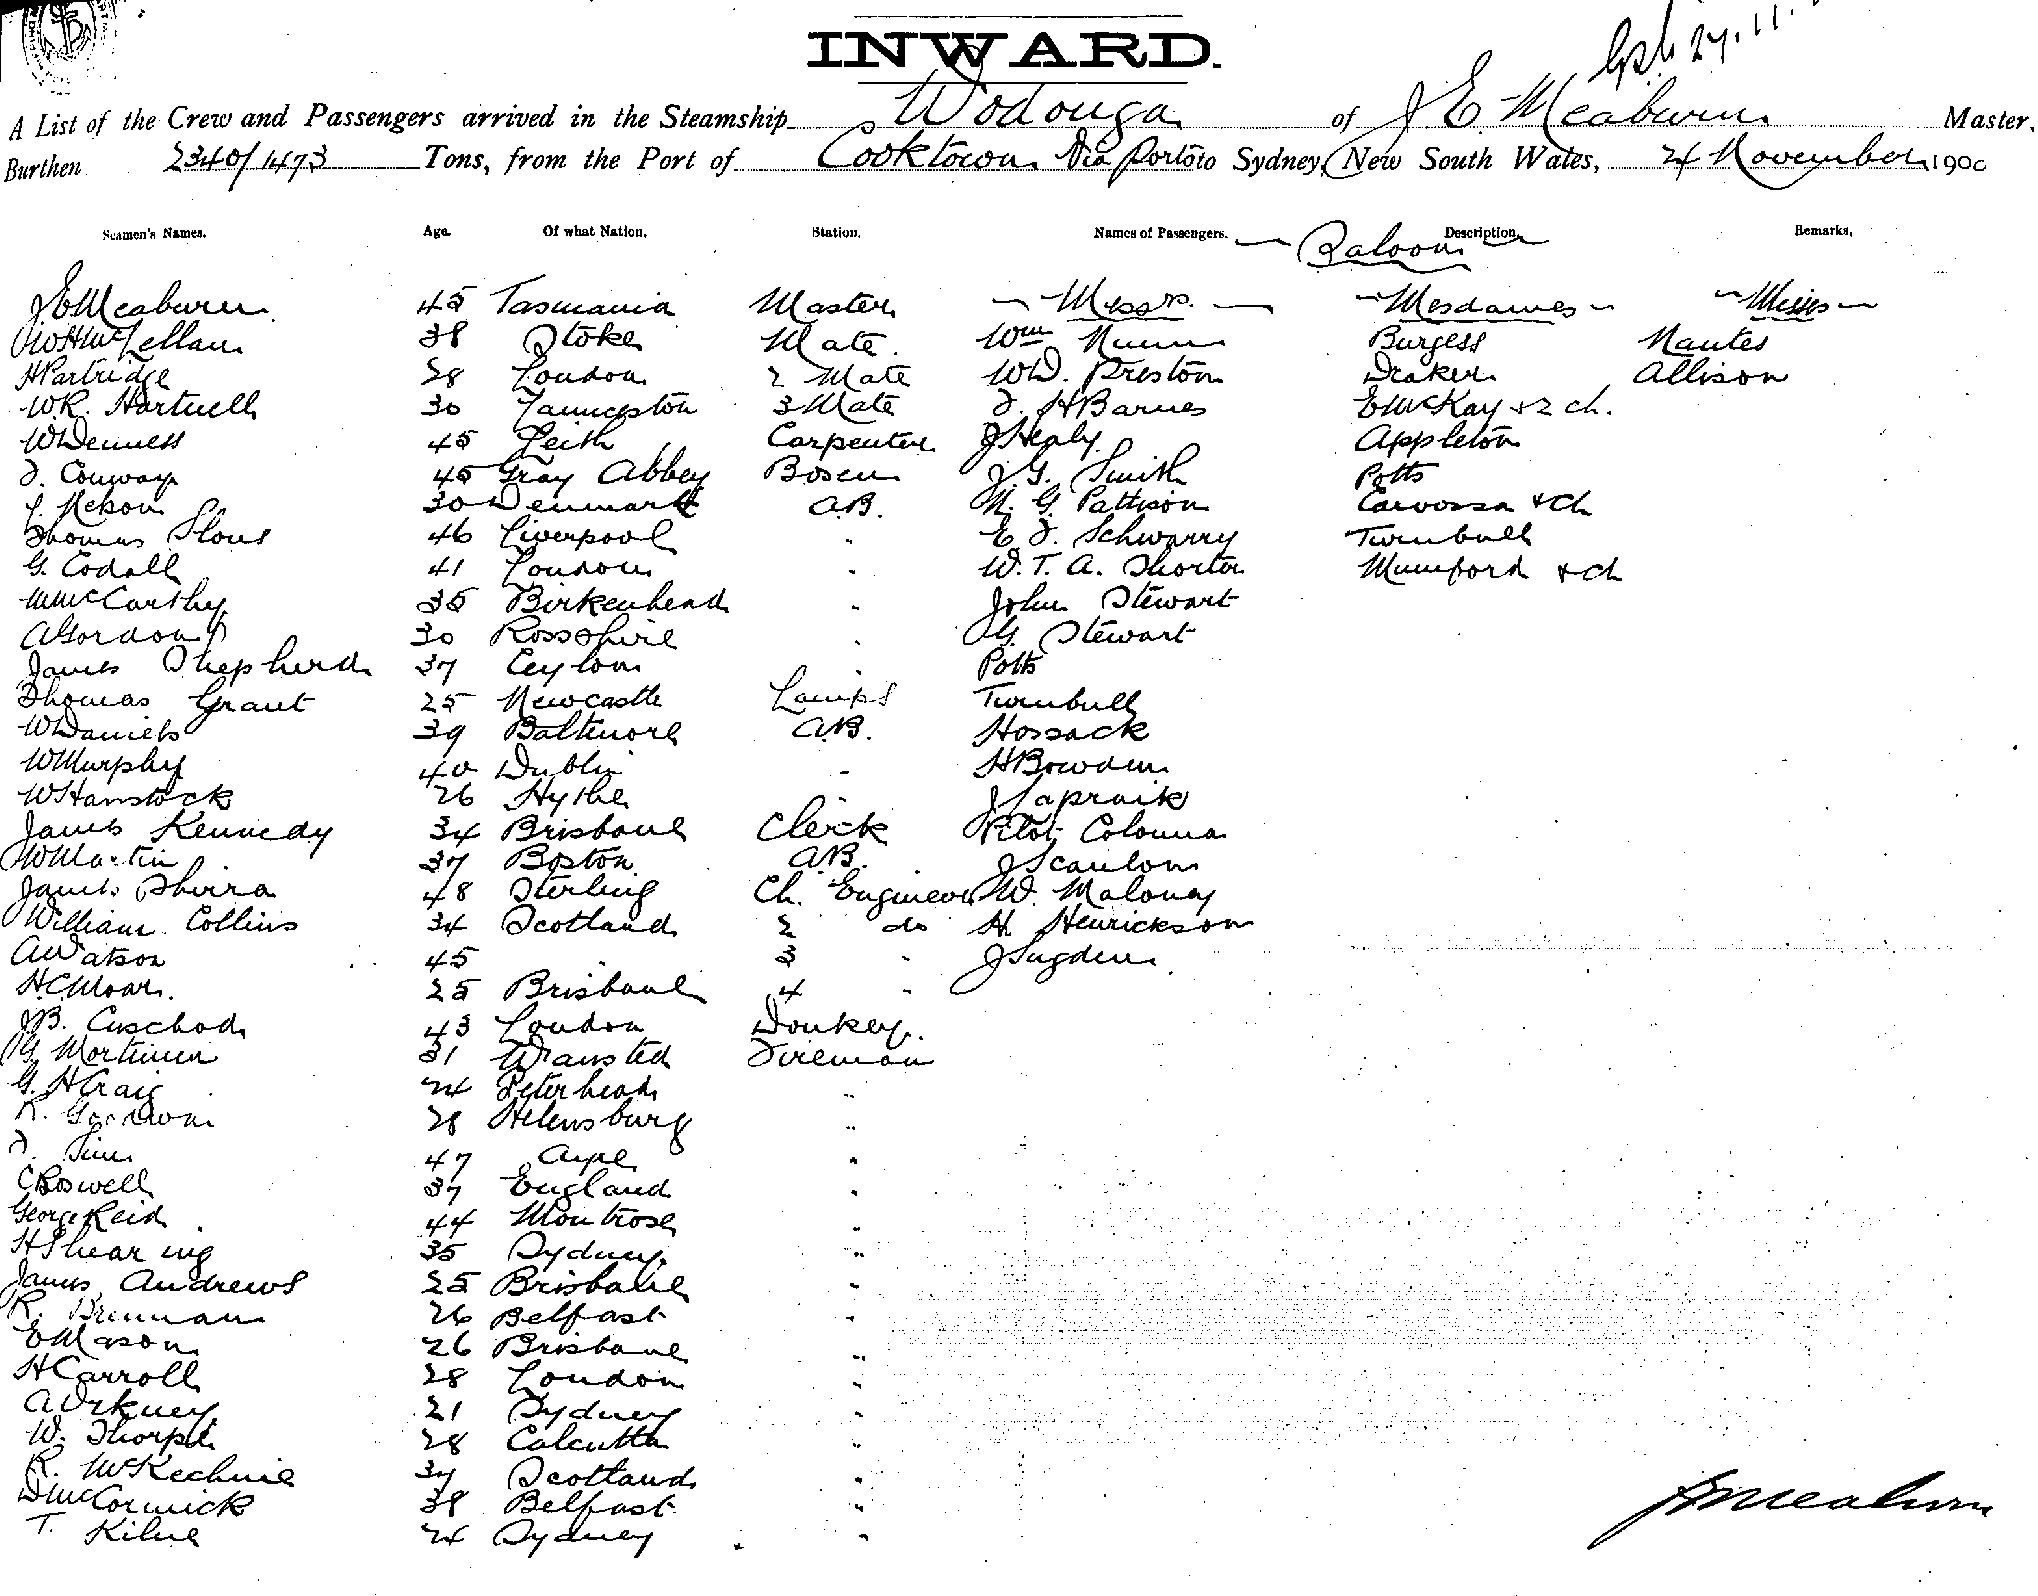 INWARD.
A List of the Crew and Passengers arrived in the Steamship Wodonga of J. E. Meaburn Master,
Burthen 2340/1473 Tons, from the Port of Cooktown Via Ports to Sydney, New South Wales, 24 November 1900
Seamen's Names. Age. Of what Nation. Station. Names of Passengers. Saloon Description. Remarks.
J E Meaburn 45 Tasmania Master Messrs. Mesdames Misses
38 Stoke Mate. Wm Nunn Burgess Nantes
H Partridge 28 London 2 Mate W D. Preston Draker Allison
W. R. Hartnell 30 Launceston 3 Mate F. H Barnes E McKay & 2 ch.
W Dennett 45 Leith Carpenter J Healy Appleton
F. Conway 45 Gray Abbey Bosen J. G. Smith Potts
J. Nelson 30 Denmark A.B. N. G. Pattison Carvossa & Ch
Thomas Slous 46 Liverpool " E J. Schwarry Turnbull
G. Codall 41 London " W. T. A. Shorter Mumford & ch
M McCarthy 35 Birkenhead " John Stewart
A Gordon 30 Rossshire " G. Stewart
James Shepherd 37 Ceylon " Potts
Thomas Grant 25 Newcastle Lamps Turnbull
W Daniels 39 Baltimore A.B. Hossack
W Murphy 40 Dublin " H Bowden
W Hanstock 26 Hythe " J Lapraik
James Kennedy 34 Brisbane Clerk Pilot Colonna
W Martin 37 Boston A.B. J Scanlon
James Shirra 48 Sterling Ch. Engineer W. Maloney
William Collins 34 Scotland 2 do H. Henrickson
A Watson 45 " 3 " J Sugden
H. C Moar. 25 Brisbane 4 "
J B. Cuschod 43 London Donkey.
G. Mortimer 31 Wansted Fireman
G. H Craig 24 Peterhead "
R. Goodwin 28 Helensburg "
F. Sim 47 "
C Boswell 37 England "
George Reid 44 Montrose "
H Shearing 35 Sydney "
James Andrews 25 Brisbane "
R. Brennan 26 Belfast "
E Mason 26 Brisbane "
H Carroll 28 London "
A Orkney 21 Sydney "
W. Thorpe 28 Calcutta "
R. McKechnie 37 Scotland "
D McCormick 38 Belfast "
T. Kilne 24 Sydney "
J E Meaburn